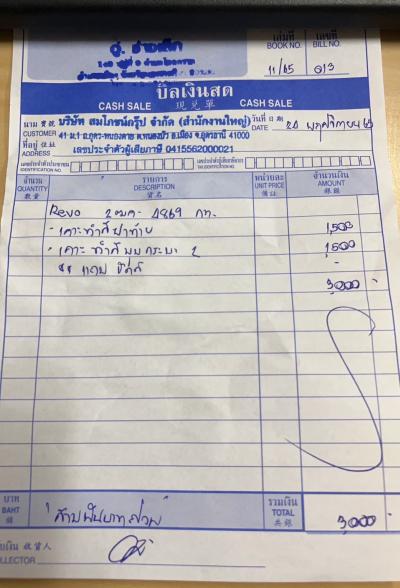 อู่ ช่างเล็ก
เล่มที่ เลขที่
BOOK NO. BILL NO.
11/65 013
บิลเงินสด
CASH SALE 現兌單 CASH SALE
นาม 寶號 บริษัท สมโภชน์กรุ๊ป จำกัด (สำนักงานใหญ่) วันที่
CUSTOMER 41 ม.1 ถ.อุดร-หนองคาย ต.หนองบัว อ.เมือง จ.อุดรธานี 41000 DATE 24 พฤศจิกายน 65
ที่อยู่ 住址
ADDRESS เลขประจำตัวผู้เสียภาษี 0415562000021
เลขประจำตัวประชาชน
IDENTIFICATION NO. TAX IDENTIFICATION NO.
จำนวน รายการ หน่วยละ จำนวนเงิน
QUANTITY DESCRIPTION UNIT PRICE AMOUNT
數量 貨名 備註 銀額
Revo 4869 กท.
- เคาะทำสีฝาท้าย 1,500
- เคาะทำสีมุมกระบะ 2 1500
-
3000
บาท รวมเงิน
BAHT สามพันบาทถ้วน TOTAL 3000
銖 共銀
收貨人
COLLECTOR